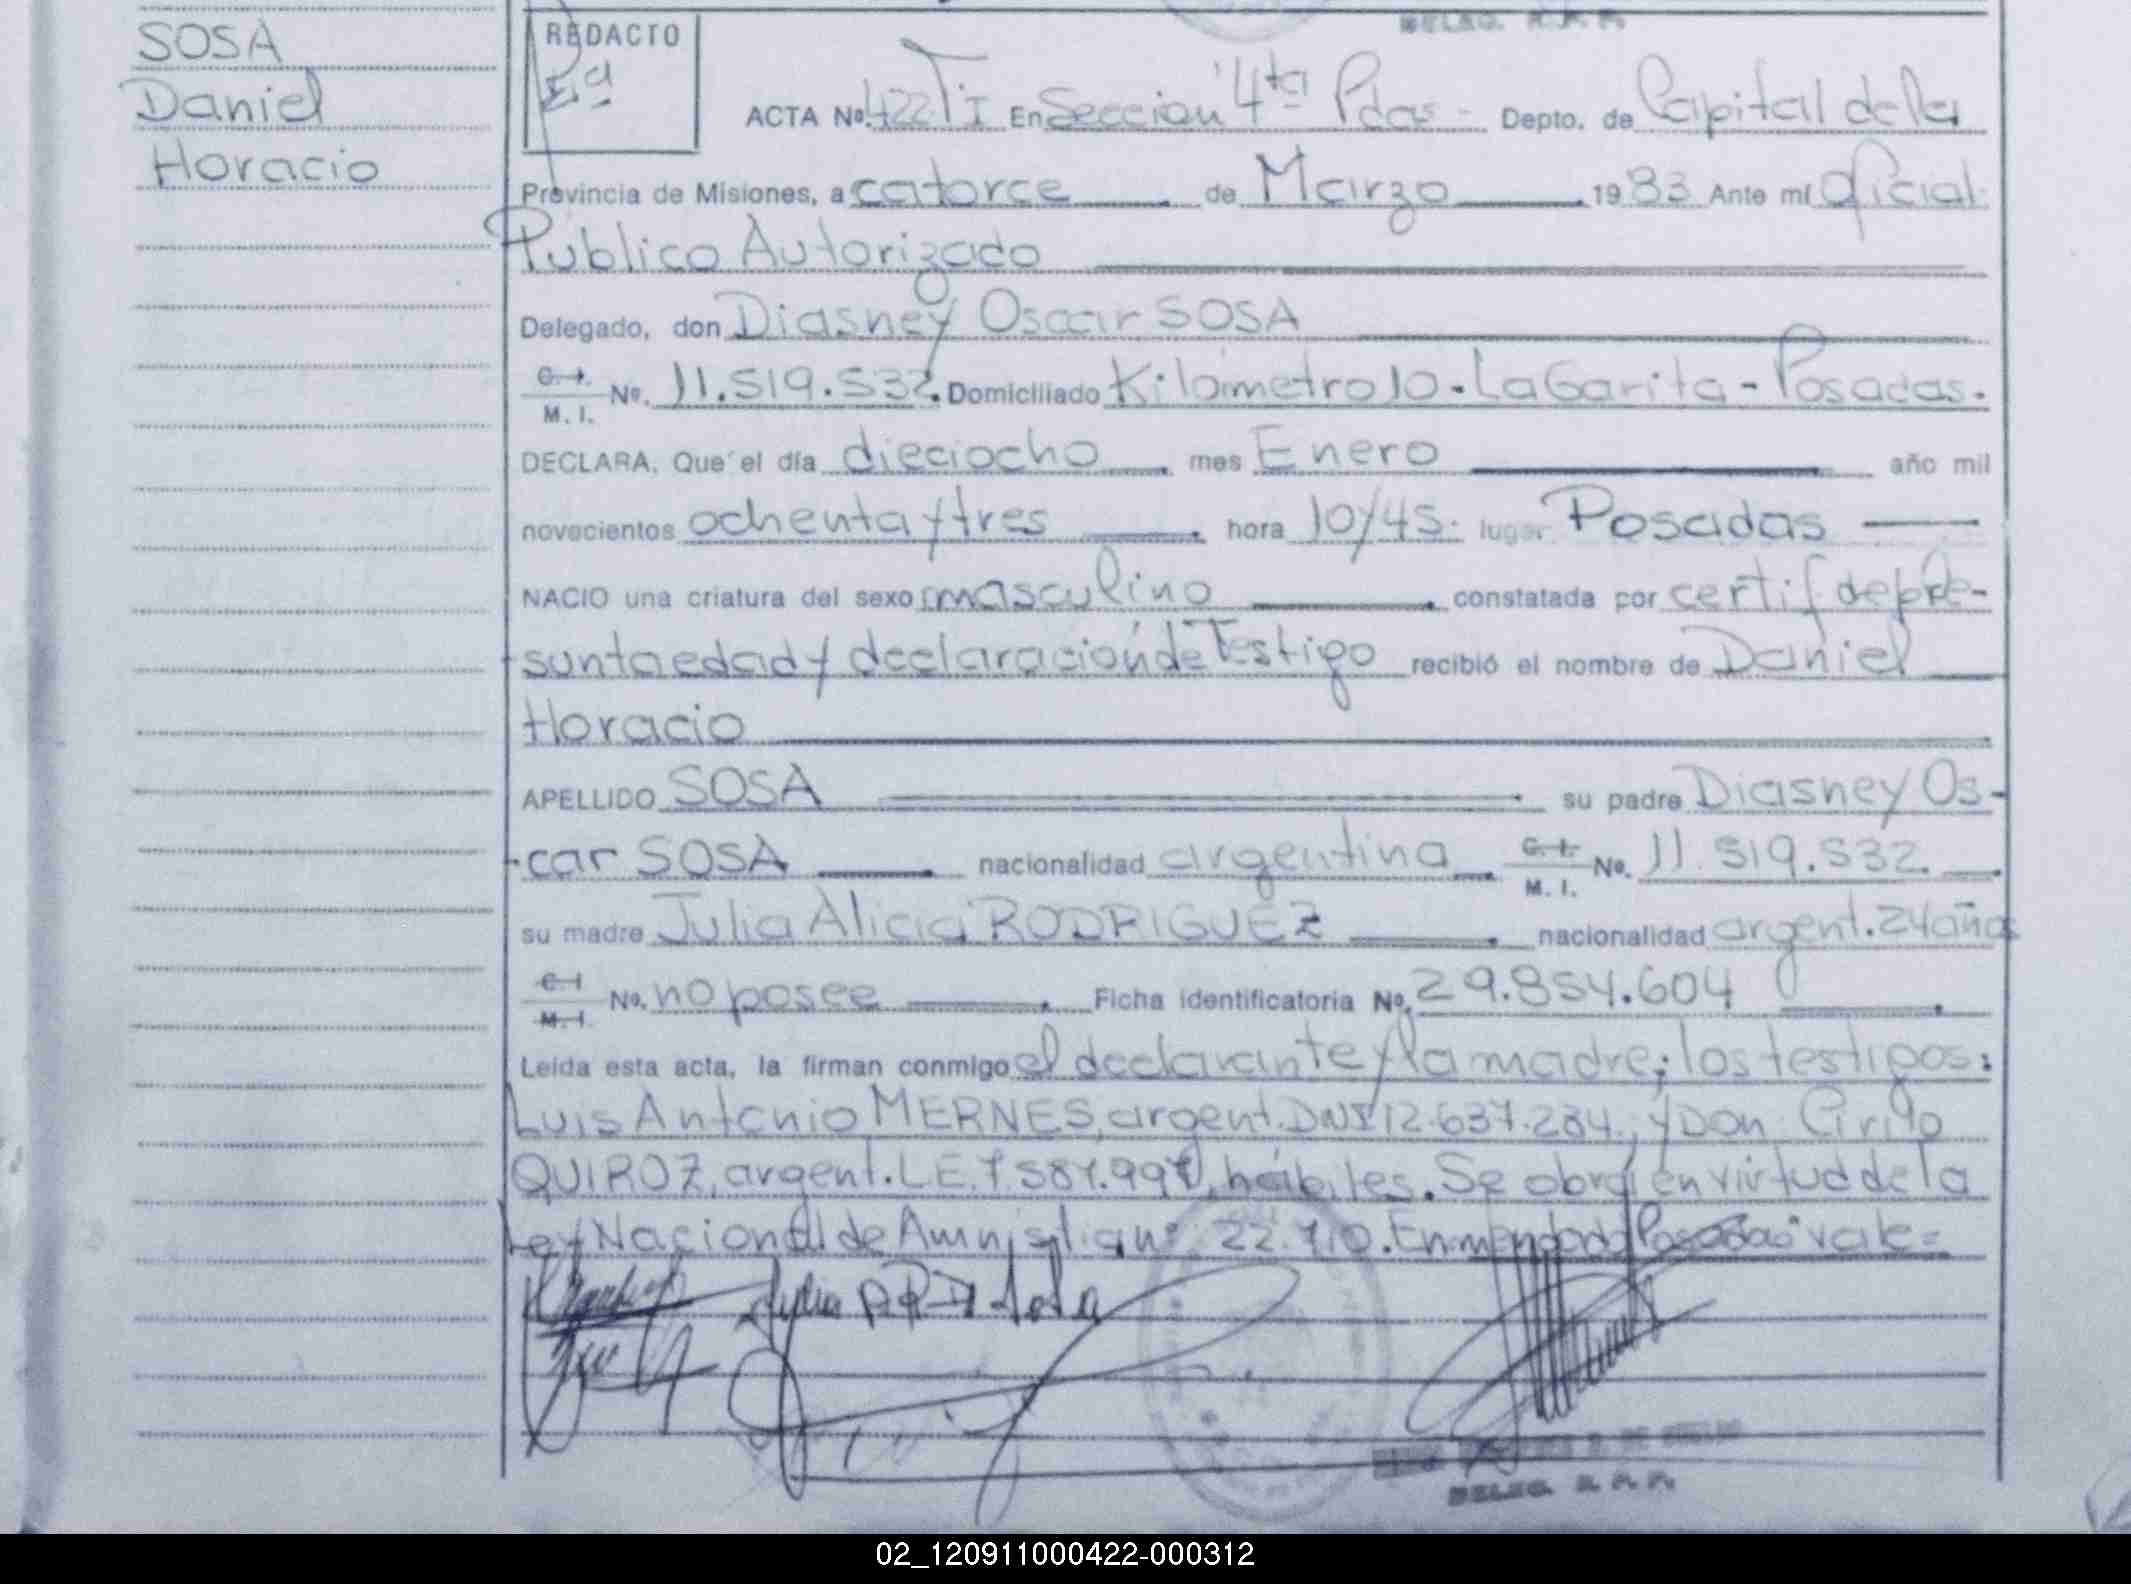 SOSA
Daniel
Horacio
REDACTO
DELEG. R. P. P.
ACTA Nº. 422 T I En Seccion 4ta Pdas - Depto. de Capital de la
Provincia de Misiones, a catorce de Marzo 1983 Ante mí Oficial
Publico Autorizado
Delegado, don Diasney Oscar SOSA
C. I. M. I. Nº. 11.519.532. Domiciliado Kilómetro 10 - La Garita - Posadas.
DECLARA, Que el día dieciocho mes Enero año mil
novecientos ochenta y tres hora 10y45. lugar Posadas
NACIO una criatura del sexo masculino constatada por certif de pre-
sunta edad y declaración de Testigo recibió el nombre de Daniel
Horacio
APELLIDO SOSA su padre Diasney Os-
-car SOSA nacionalidad argentina C. I. M. I. Nº. 11.519.532.
su madre Julia Alicia RODRIGUEZ nacionalidad argent. 24 años
C. I M. I. Nº. no posee Ficha identificatoria Nº. 29.854.604
Leída esta acta, la firman conmigo el declarante y la madre; los testigos:
Luis Antonio MERNES, argent. DNI 12.637.284., y Don Cirilo
QUIROZ, argent. LE. 7.587.997, hábiles. Se obra en virtud de la
Ley Nacional de Amnistia nº 22.710. Enmendado "Posadas" vale=
DELEG. R. P. P.
02_120911000422-000312